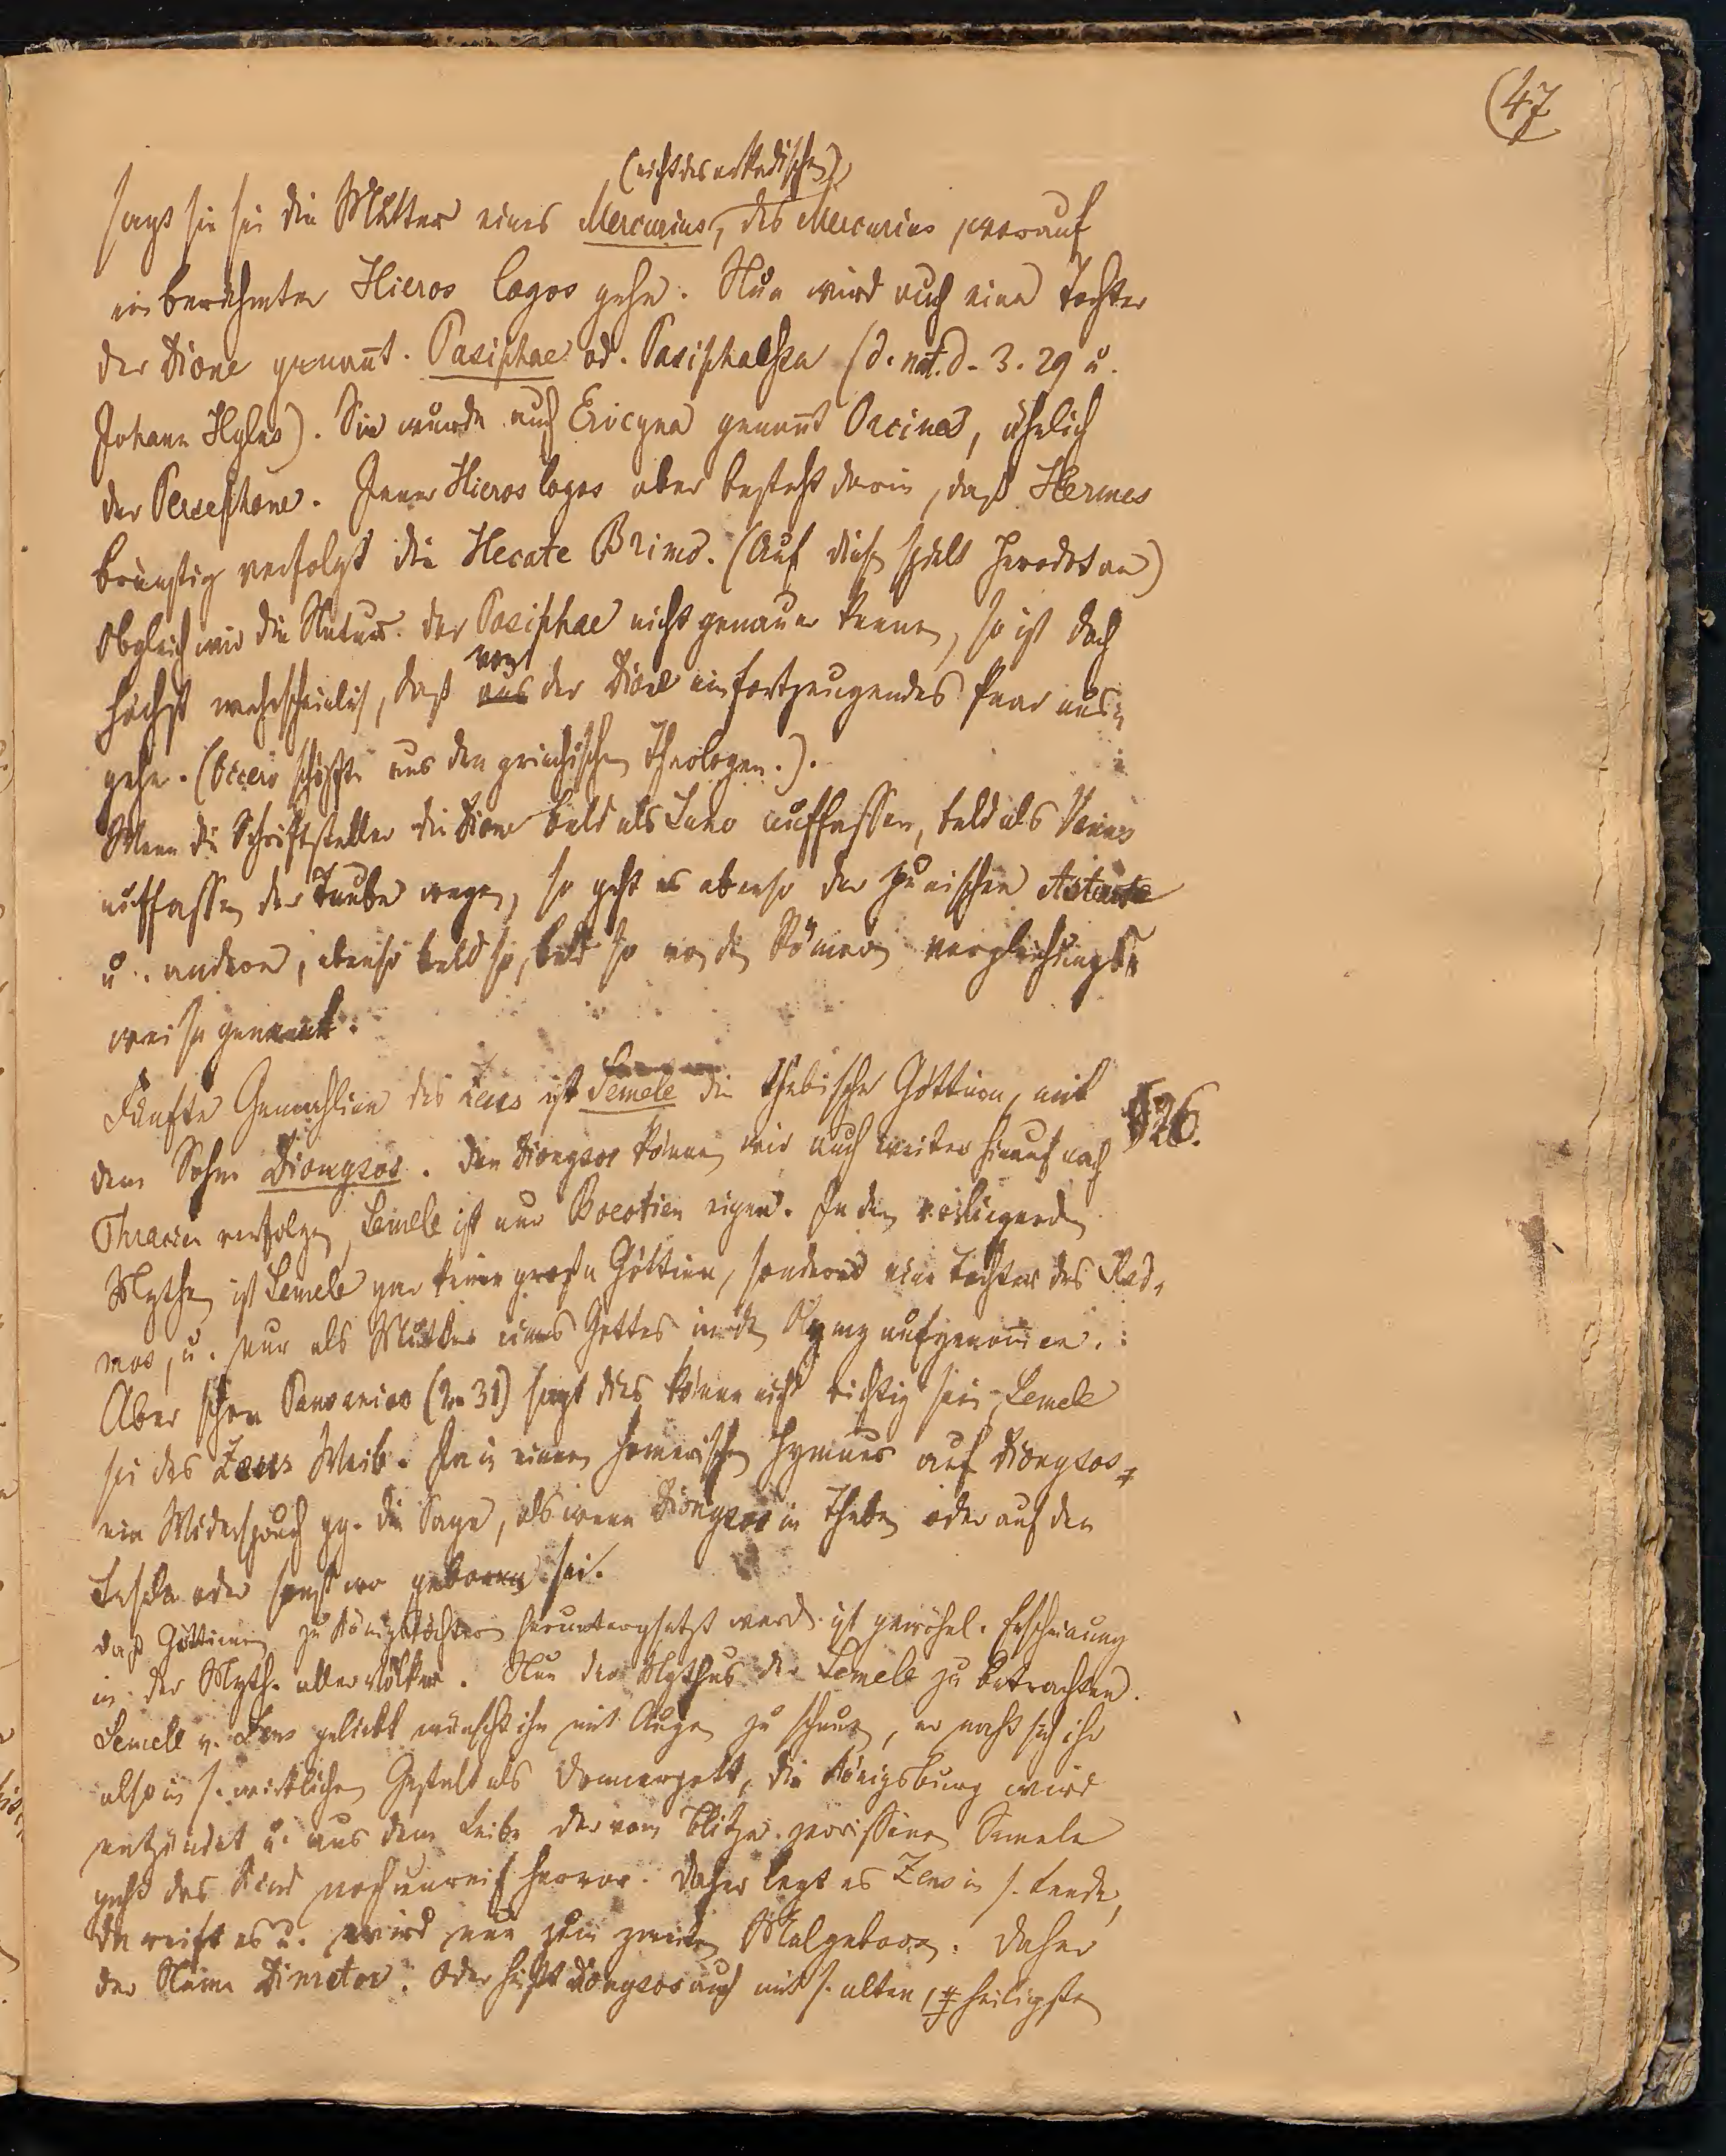 (47
(nicht des arkadischen)
sagt sie sei die Mutter eines Mercurius, des Mercurius worauf
ein berühmter Hieros logos gehe. Nun wird auch eine Tochter
der Dione genan̄t. Pasiphae od. Pasiphaessa (d. nat. d. 3. 29 u.
Johann Hylas). Sie wurde auch Erycyna genan̄t Orcina, ähnlich
der Persephone. Jener Hieros logos aber besteht darin, daß Hermes
brünstig verfolgt die Hecate Brimo. (Auf diese spielt Herodot an)
Obgleich wir die Natur der Pasiphae nicht genauer kennen, so ist doch
von
höchst wahrscheinlich, daß aus der Dione ein fortzeugendes Paar aus=
gehe. (Cicero schöpfte aus den griechischen Theologen.).
Wenn die Schriftsteller die Dione bald als Juno auffassen, bald als Venus
auffassen der Taube wegen, so geht es ebenso der punischen Astarte
u. andere, ebenso bald so, bald so von den Römern vergleichungs=
weise genannt.
Fünfte Gemahlinn des Zeus ist Semele die thebische Göttinn, mit
§26.
dem Sohne Dionysos. Den Dionysos können wir auch weiter hinauf nach
Thracien verfolgen, Semele ist nur Boeotien eigen. In den
Mythen ist Semele gar keine große Göttinn, sondern eine Tochter des Kad=
mos, u. nur als Mutter eines Gottes in den Olymp aufgenom̄en.
Aber schon Pausanias (2. 31) sagt dies könne nicht richtig sein, Semele
sei des Zeus Weib. Ja in einem homerischen Hymnus auf Dionysos
ein Widerspruch gg. die Sage, als wenn Dionysos in Theben oder auf den
Inseln oder sonst wo geboren sei.
Daß Göttinnen zu Königstöchtern heruntergesetzt werd. ist gewöhnl. Erscheinung
in der Myth. aller Völker. Nun der Mythus der Semele zu betrachten.
Semele v. Zeus geliebt wünscht ihn mit Augen zu schauen, er naht sich ihr
also in s. wirklichen Gestalt als Donnergott, die Königsburg wird
entzündet u. aus dem Leibe der vom Blitze zerrissenen Semele
geht das Kind noch unreif hervor. Daher legt es Zeus in s. Lende,
da reift es u. wird nun zum zweiten Mal geboren. Daher
der Name Dimetor. Oder heißt Dionysos auch mit s. alten, heiligsten